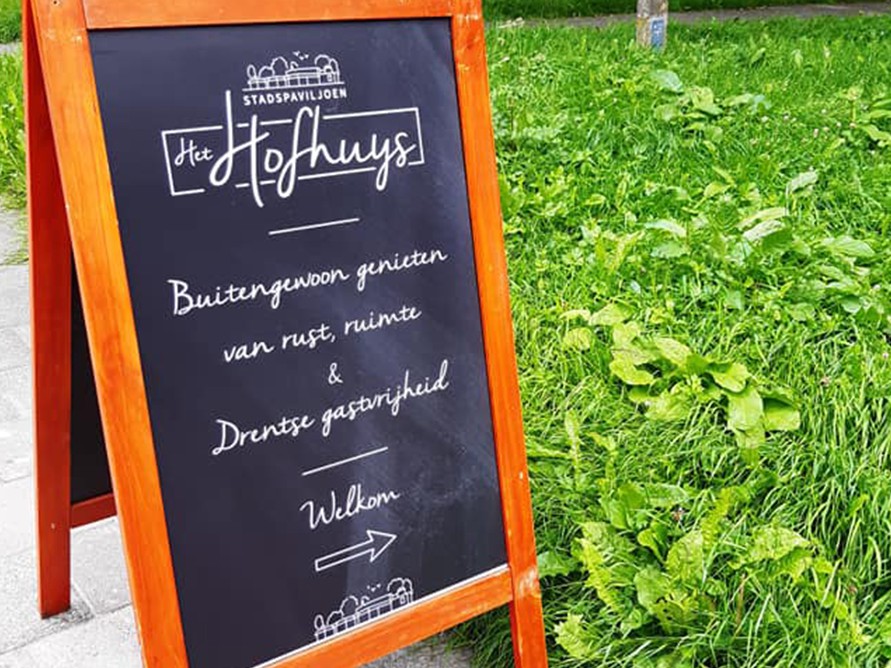 STADSPAVILJOEN
Het Hofhuys
Buitengewoon genieten
van rust, ruimte
&
Drentse gastvrijheid
Welkom